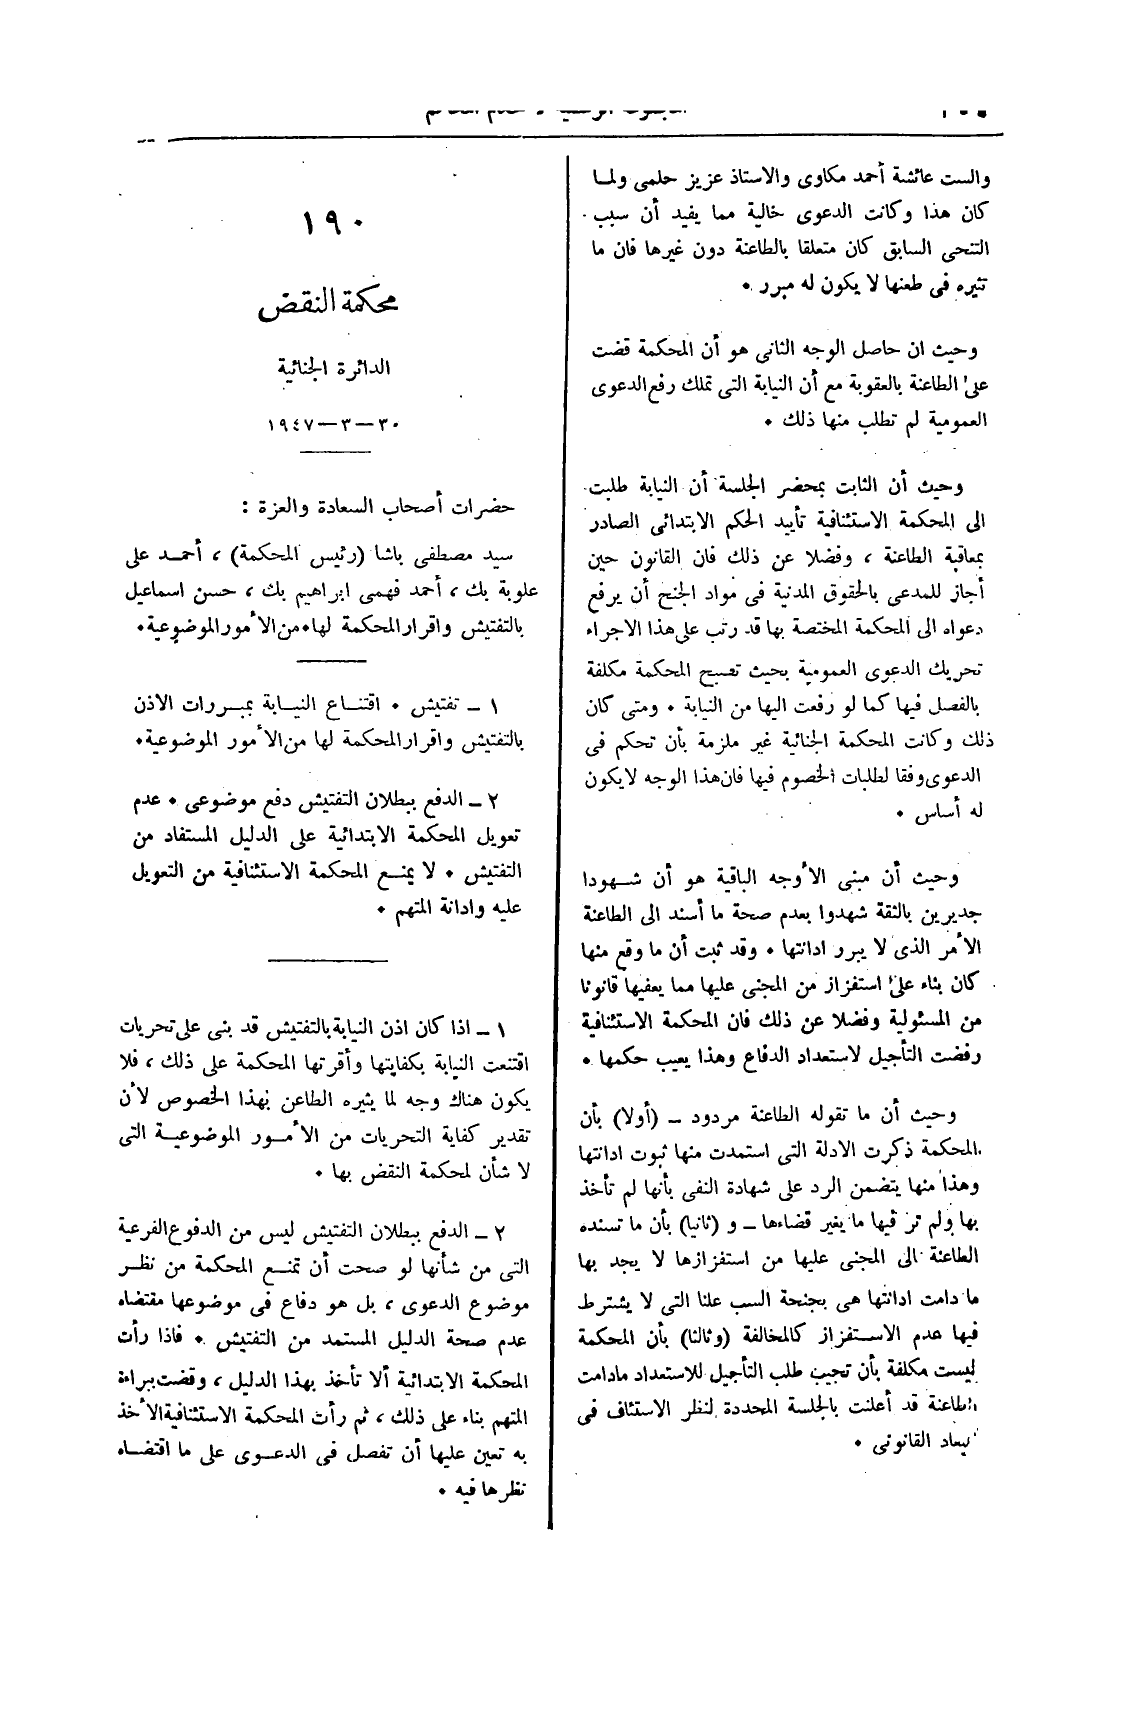 والست عائشة أحمد مكاوى والاستاذ عزيز حلمى ولما
كان هذا وكانت الدعوى خالية مما يفيد أن سبب
التنحى السابق كان متعلقا بالطاعنة دون غيرها فان ما
تثيره فى طعنها لا يكون له مبرر ٠
وحيث ان حاصل الوجه الثانى هو أن المحكمة قضت
على الطاعنة بالعقوبة مع أن النيابة التى تملك رفع الدعوى
العمومية لم تطلب منها ذلك ٠
وحيث أن الثابت بمحضر الجلسة أن النيابة طلبت
الى المحكمة الاستئنافية تأييد الحكم الابتدائى الصادر
بمعاقبة الطاعنة ، وفضلا عن ذلك فان القانون حين
أجاز للمدعى بالحقوق المدنية فى مواد الجنح أن يرفع
دعواه الى المحكمة المختصة بها قد رتب على هذا الاجراء
تحريك الدعوى العمومية بحيث تصبح المحكمة مكلفة
بالفصل فيها كما لو رفعت اليها من النيابة ٠ ومتى كان
ذلك وكانت المحكمة الجنائية غير ملزمة بأن تحكم فى
الدعوى وفقا لطلبات الخصوم فيها فان هذا الوجه لا يكون
له أساس ٠
وحيث أن مبنى الأوجه الباقية هو أن شهودا
جديرين بالثقة شهدوا بعدم صحة ما أسند الى الطاعنة
الأمر الذى لا يبرر ادانتها ٠ وقد ثبت أن ما وقع منها
كان بناء على استفزاز من المجنى عليها مما يعفيها قانونا
من المسئولية وفضلا عن ذلك فان المحكمة الاستئنافية
رفضت التأجيل لاستعداد الدفاع وهذا يعيب حكمها ٠
وحيث أن ما تقوله الطاعنة مردود ــ (أولا) بأن
المحكمة ذكرت الادلة التى استمدت منها ثبوت ادانتها
وهذا منها يتضمن الرد على شهادة النفى بأنها لم تأخذ
بها ولم تر فيها ما يغير قضاءها ــ و (ثانيا) بأن ما تسنده
الطاعنة الى المجنى عليها من استفزازها لا يجد بها
ما دامت ادانتها هى بجنحة السب علنا التى لا يشترط
فيها عدم الاستفزاز كالمخالفة (وثالثا) بأن المحكمة
ليست مكلفة بأن تجيب طلب التأجيل للاستعداد مادامت
الطاعنة قد أعلنت بالجلسة المحددة لنظر الاستئاف فى
يعاد القانونى ٠
١٩٠
محكمة النقض
الدائرة الجنائية
٣٠ــ٣ــ١٩٤٧
حضرات أصحاب السعادة والعزة :
سيد مصطفى باشا (رئيس المحكمة) ، أحمد على
علوبة بك ، أحمد فهمى ابراهيم بك ، حسن اسماعيل
بالتفتيش واقرار المحكمة لها ٠ من الأمور الموضوعية ٠
١ ــ تفتيش ٠ اقتناع النيابة بمبررات الاذن
بالتفتيش واقرار المحكمة لها من الأمور الموضوعية ٠
٢ ــ الدفع ببطلان التفتيش دفع موضوعى ٠ عدم
تعويل المحكمة الابتدائية على الدليل المستفاد من
التفتيش ٠ لا يمنع المحكمة الاستئنافية من التعويل
عليه وادانة المتهم ٠
١ ــ اذا كان اذن النيابة بالتفتيش قد بنى على تحريات
اقتنعت النيابة بكفايتها وأقرتها المحكمة على ذلك ، فلا
يكون هناك وجه لما يثيره الطاعن بهذا الخصوص لأن
تقدير كفاية التحريات من الأمور الموضوعية التى
لا شأن لمحكمة النقض بها ٠
٢ ــ الدفع ببطلان التفتيش ليس من الدفوع الفرعية
التى من شأنها لو صحت أن تمنع المحكمة من نظر
موضوع الدعوى ، بل هو دفاع فى موضوعها مقتضاه
عدم صحة الدليل المستمد من التفتيش ٠ فاذا رأت
المحكمة الابتدائية ألا تأخذ بهذا الدليل ، وقضت ببراءة
المتهم بناء على ذلك ، ثم رأت المحكمة الاستئنافية الأخذ
به تعين عليها أن تفصل فى الدعوى على ما اقتضاه
نظرها فيه ٠